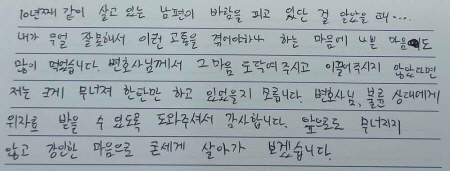 10년째 같이 살고 있는 남편이 바람을 피고 있단 걸 알았을 때...
내가 무얼 잘못해서 이런 고통을 겪어야하나 하는 마음에 나쁜 마음도
많이 먹었습니다. 변호사님께서 그 마음 도닥여주시고 이끌어주시지 않았다면
저는 크게 무너져 한탄만 하고 있었을지 모릅니다. 변호사님, 불륜 상대에게
위자료 받을 수 있도록 도와주셔서 감사합니다. 앞으로도 무너지지
않고 강인한 마음으로 굳세게 살아가 보겠습니다.